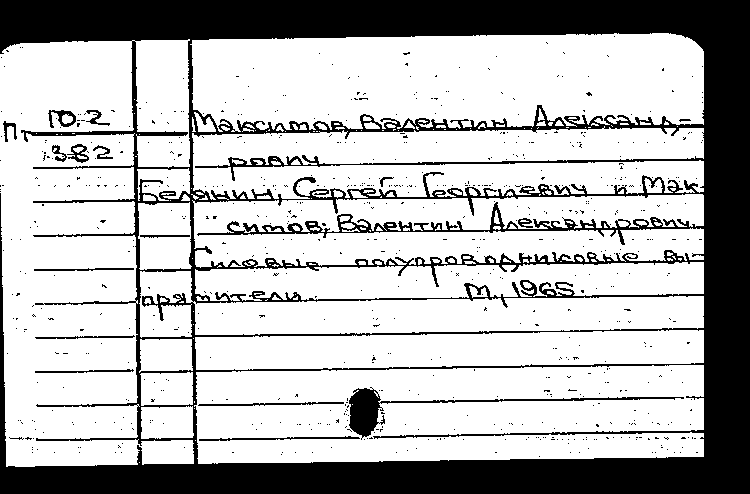 Пт 10.2
382
Максимов, Валентин Александ-
рович
Белянин, Сергей Георгиевич и Мак-
симов, Валентин Александрович.
Силовые полупроводниковые вы-
прямители. М., 1965.